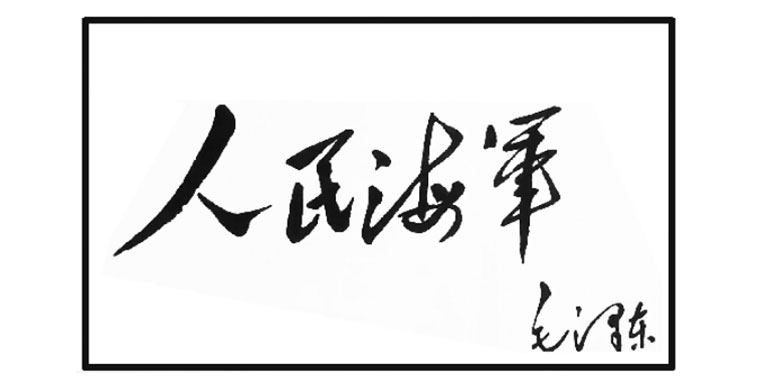 人民海軍
毛泽东